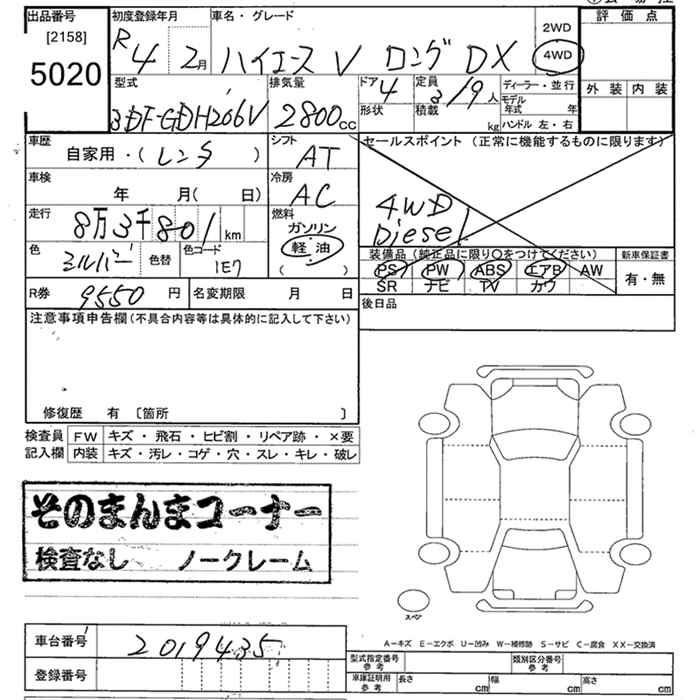 出品番号
[2158]
5020
初度登録年月
R4 2月
車名・グレード
ハイエースV ロング DX
2WD
4WD
評価点
外装 内装
型式
3DF-GDH206V
排気量
2800cc
ドア 4
形状
定員
3/9人
積載
kg
ディーラー・並行
モデル年式 年
ハンドル 左・右
車歴
自家用・(レンタ)
シフト
AT
車検
年 月( 日)
冷房
AC
走行
8万3千801km
燃料
ガソリン
軽油
( )
色
シルバー
色替
色コード
1E7
セールスポイント(正常に機能するものに限ります)
4WD
Diesel
装備品(純正品に限り〇をつけてください)
PS PW ABS エアB AW
SR ナビ TV カワ
新車保証書
有・無
R券
9550円
名変期限 月 日
後日品
注意事項申告欄(不具合内容等は具体的に記入して下さい)
修復歴 有 〔箇所 〕
検査員記入欄
FW キズ・飛石・ヒビ割・リペア跡・×要
内装 キズ・汚レ・コゲ・穴・スレ・キレ・破レ
そのまんまコーナー
検査なし ノークレーム
スペア
車台番号
2019435
登録番号
A-キズ E-エクボ U-凹み W-補修跡 S-サビ C-腐食 XX-交換済
型式指定番号
参考
類別区分番号
参考
車庫証明用
参考
長さ cm
幅 cm
高さ cm